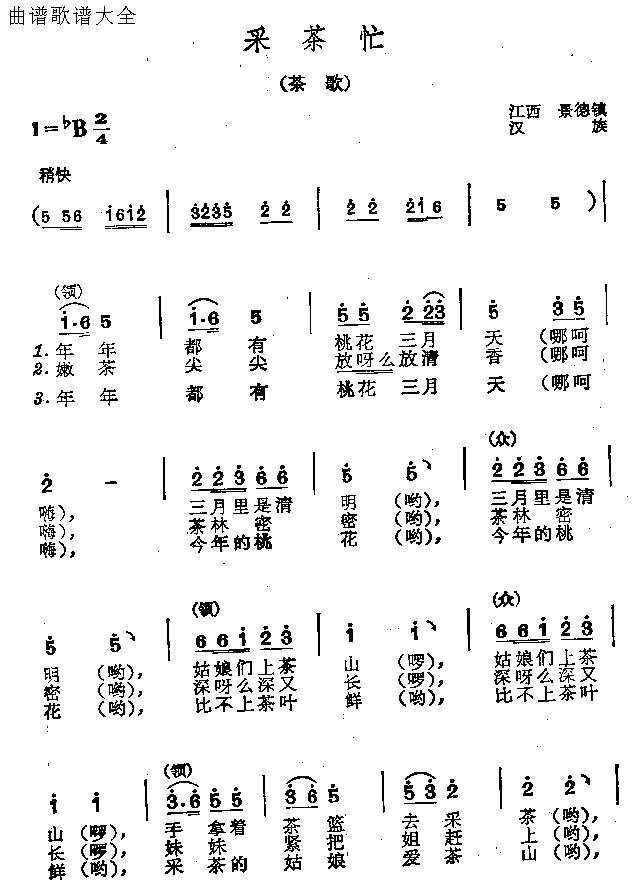 曲谱歌谱大全
采茶忙
(茶 歌)
江西 景德镇
汉 族
1=♭B 2/4
稍快
(5 56 1612 | 3235 2 2 | 2 2 216 | 5 5) |
(领)
1·6 5 | 1·6 5 | 5 5 2 23 | 5 3 5 |
1.年 年 都 有 桃花 三月 天 (哪呵
2.嫩 茶 尖 尖 放呀么放清 香 (哪呵
3.年 年 都 有 桃花 三月 天 (哪呵
(众)
2 - | 2 2 3 6 6 | 5 5 | 2 2 3 6 6 |
嗨), 三月里是清 明 (哟), 三月里是清
嗨), 茶林 密 密 (哟), 茶林 密
嗨), 今年的桃 花 (哟), 今年的桃
(领) (众)
5 5 | 6 6 1 2 3 | 1 1 | 6 6 1 2 3 |
明 (哟), 姑娘们上茶 山 (啰), 姑娘们上茶
密 (哟), 深呀么深又 长 (啰), 深呀么深又
花 (哟), 比不上茶叶 鲜 (哟), 比不上茶叶
(领)
1 1 | 3·6 5 5 | 3 6 5 | 5 3 2 | 2 2 |
山 (啰), 手 拿着 茶 篮 去 采 茶 (哟),
长 (啰), 妹 妹 紧 把 姐 赶 上 (哟),
鲜 (哟), 采 茶的 姑 娘 爱 茶 山 (哟),